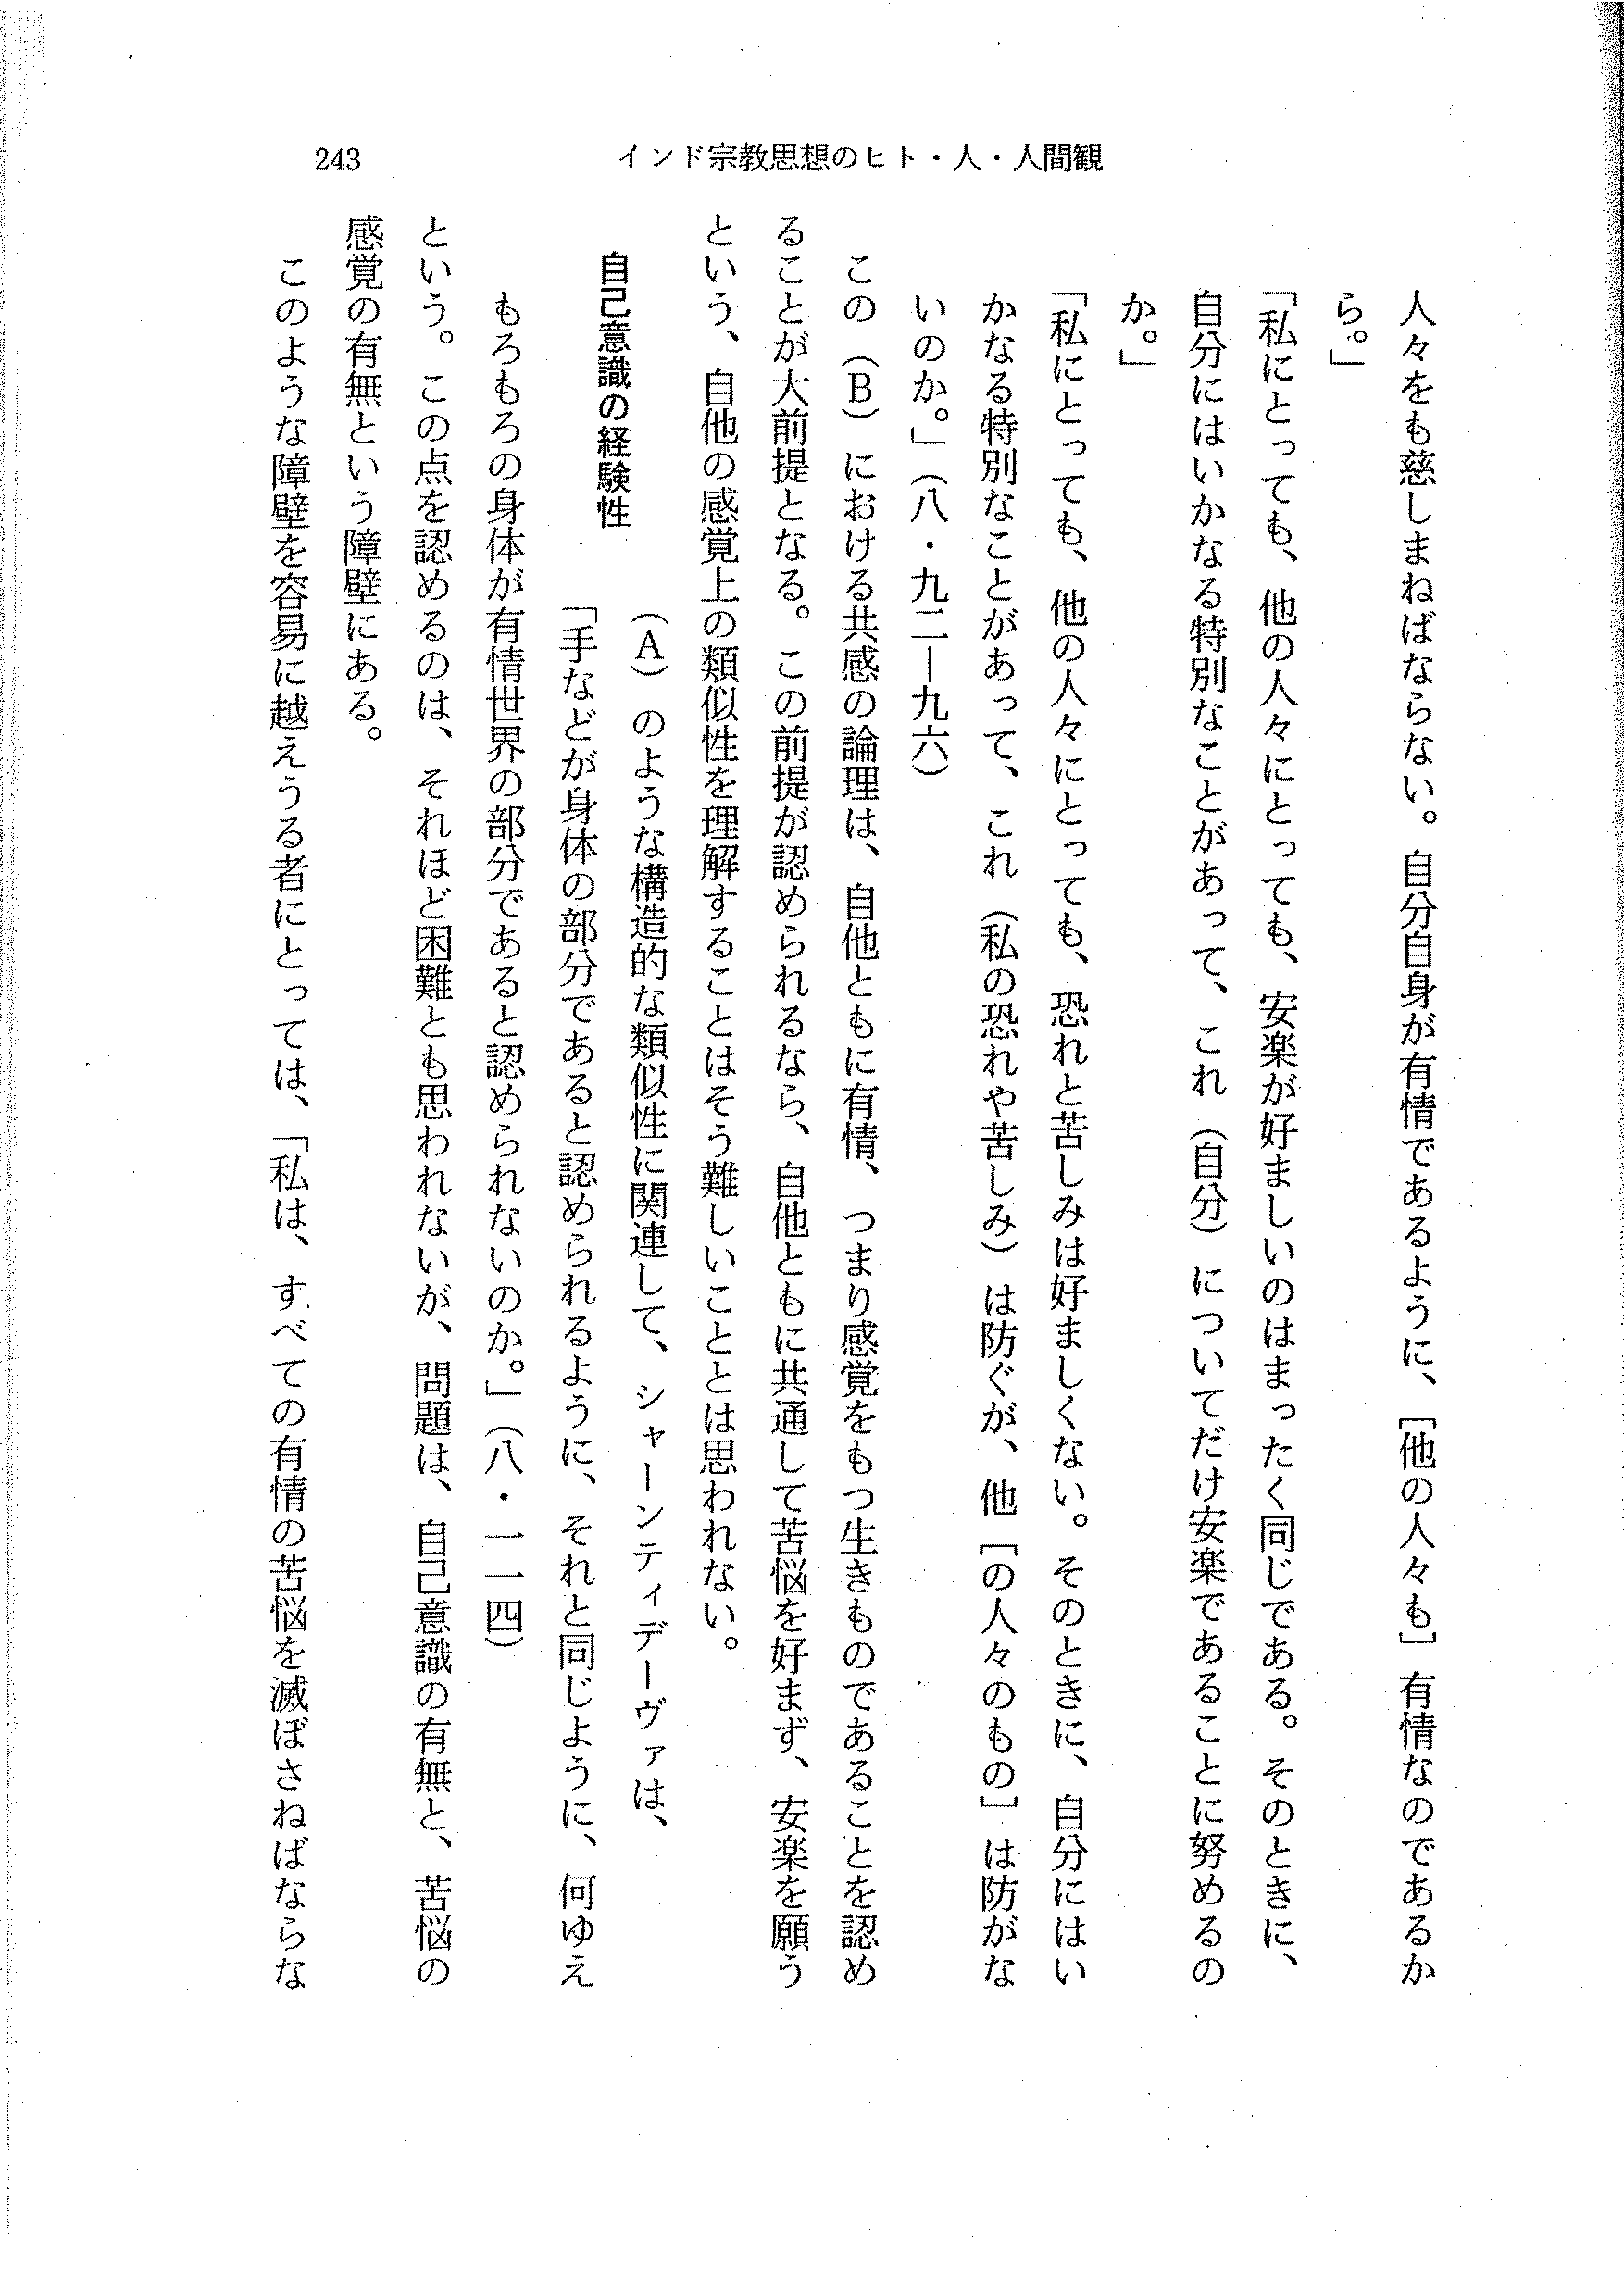 243
インド宗教思想のヒト・人・人間観
人々をも慈しまねばならない。自分自身が有情であるように、［他の人々も］有情なのであるか
ら。」
「私にとっても、他の人々にとっても、安楽が好ましいのはまったく同じである。そのときに、
自分にはいかなる特別なことがあって、これ（自分）についてだけ安楽であることに努めるの
か。」
「私にとっても、他の人々にとっても、恐れと苦しみは好ましくない。そのときに、自分にはい
かなる特別なことがあって、これ（私の恐れや苦しみ）は防ぐが、他［の人々のもの］は防がな
いのか。」（八・九二―九六）
この（B）における共感の論理は、自他ともに有情、つまり感覚をもつ生きものであることを認め
ることが大前提となる。この前提が認められるなら、自他ともに共通して苦悩を好まず、安楽を願う
という、自他の感覚上の類似性を理解することはそう難しいこととは思われない。
自己意識の経験性
（A）のような構造的な類似性に関連して、シャーンティデーヴァは、
「手などが身体の部分であると認められるように、それと同じように、何ゆえ
もろもろの身体が有情世界の部分であると認められないのか。」（八・一一四）
という。この点を認めるのは、それほど困難とも思われないが、問題は、自己意識の有無と、苦悩の
感覚の有無という障壁にある。
このような障壁を容易に越えうる者にとっては、「私は、すべての有情の苦悩を滅ぼさねばならな